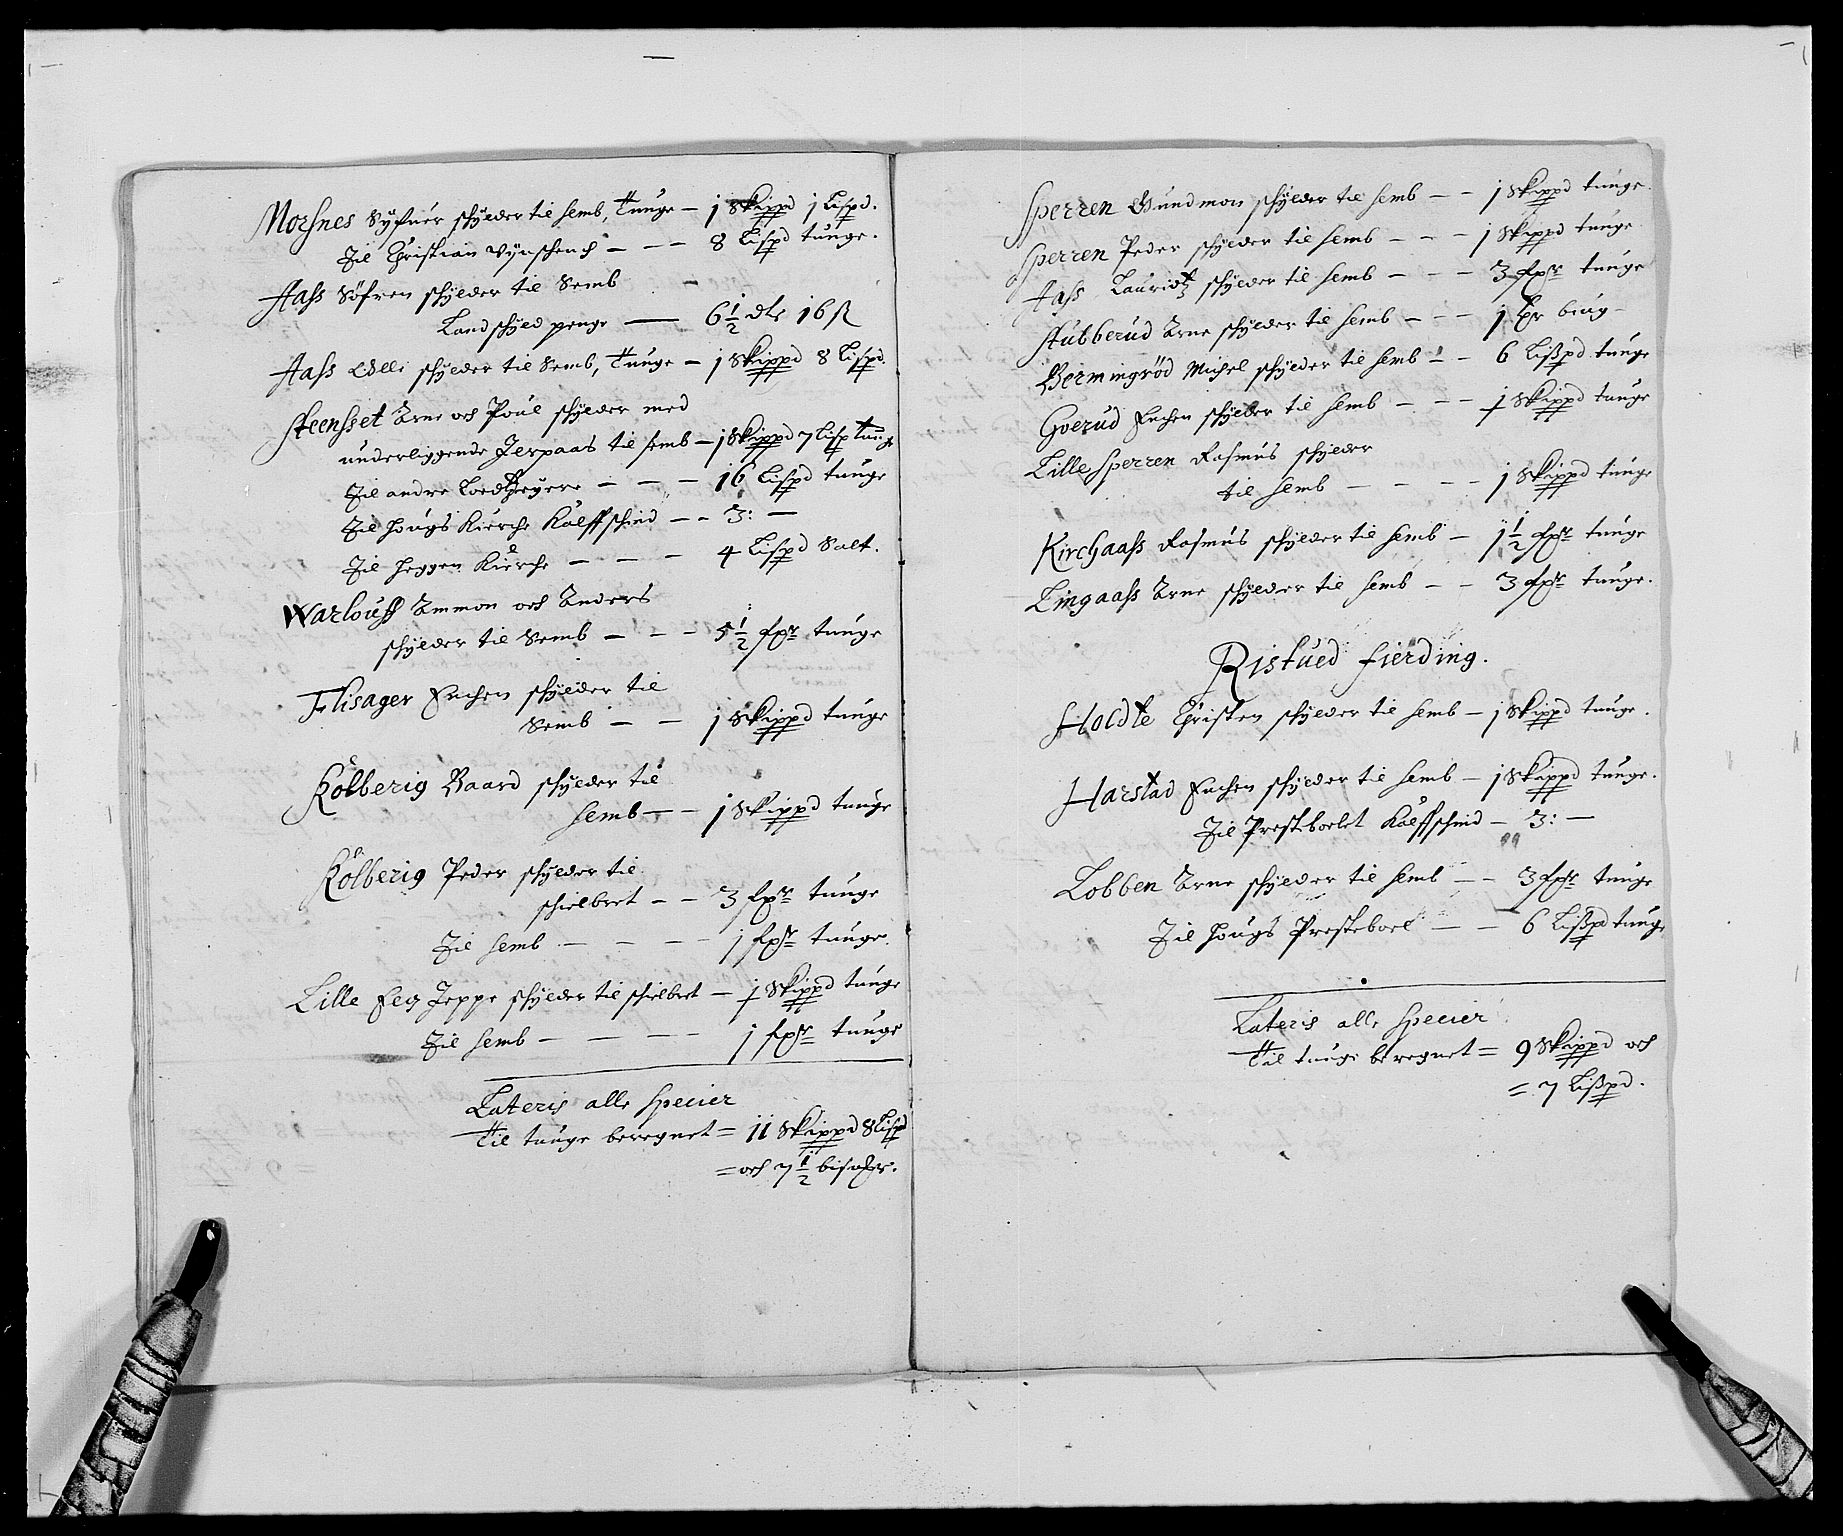 Morsnes Syfuer schylder til Semb, Tunge – 1 Skippd 1 Lispd.
Til Christian Wynschench – – – 8 Lispd tunge.
Aass Søfren schylder til Semb –
Landschyld penge — 6 1/2 dlr 16 ß
Aass Oelle schylder til Semb, Tunge – 1 Skippd 8 Lispd.
Steensset Arne och Poul schylder med
underliggende Jerpaas til Semb – 1 Skippd 7 Lisp tunge
Til andre Lodtzeyere – – – 16 Lispd tunge
Til Hougs Kierche Kalffschind – – 3: –
Til Heggen Kierche – – – – 4 Lispd Salt.
Warlouff Ammon och Anders
schylder til Semb – – – 5 1/2 fpr tunge
Flisager Enchen schylder til
Semb – – 1 Skippd tunge
Kolberig Baard schylder til
Semb – – 1 Skippd tunge
Kolberig Peder schylder til
schielbret – – 3 fpr tunge
Til Semb – – – – 1 fpr tunge.
Lille Eeg Jeppe schylder til schielbret – 1 Skippd tunge
Til Semb – – – – 1 fpr tunge
Lateris alle Specier
Til tunge beregnet = 11 Skippd 8 Lispd
= och 7 1/2 bismer.
Sperren Gudmon schylder til Semb – – 1 Skippd tunge.
Sperren Peder schylder til Semb – – – 1 Skippd tunge
Aass Lauridtz schylder til Semb – – – 3 fpr tunge
Stubberud Arne schylder til Semb – – – 1 biug –
Germingrød Michel schylder til Semb – – 6 Lißpd tunge
Goerud Enchen schylder til Semb – – – 1 Skippd tunge
Lille Sperren Rasmus schylder
til Semb – – – – 1 Skippd tunge
Kirchaass Rasmus schylder til Semb – 1 1/2 fpr tunge
Lingaass Arne schylder til Semb – – 3 fpr tunge.
Ristued fierding.
Holdte Christen schylder til Semb – 1 Skippd tunge.
Harstad Enchen schylder til Semb – 1 Skippd tunge.
Til Presteboelet Kalffschind – 3: –
Lobben Arne schylder til Semb – – 3 fpr tunge
Til Hougs Presteboel – – 6 Lißpd tunge
Lateris alle Specier
Til tunge beregnet = 9 Skippd och
= 7 Lißpd.